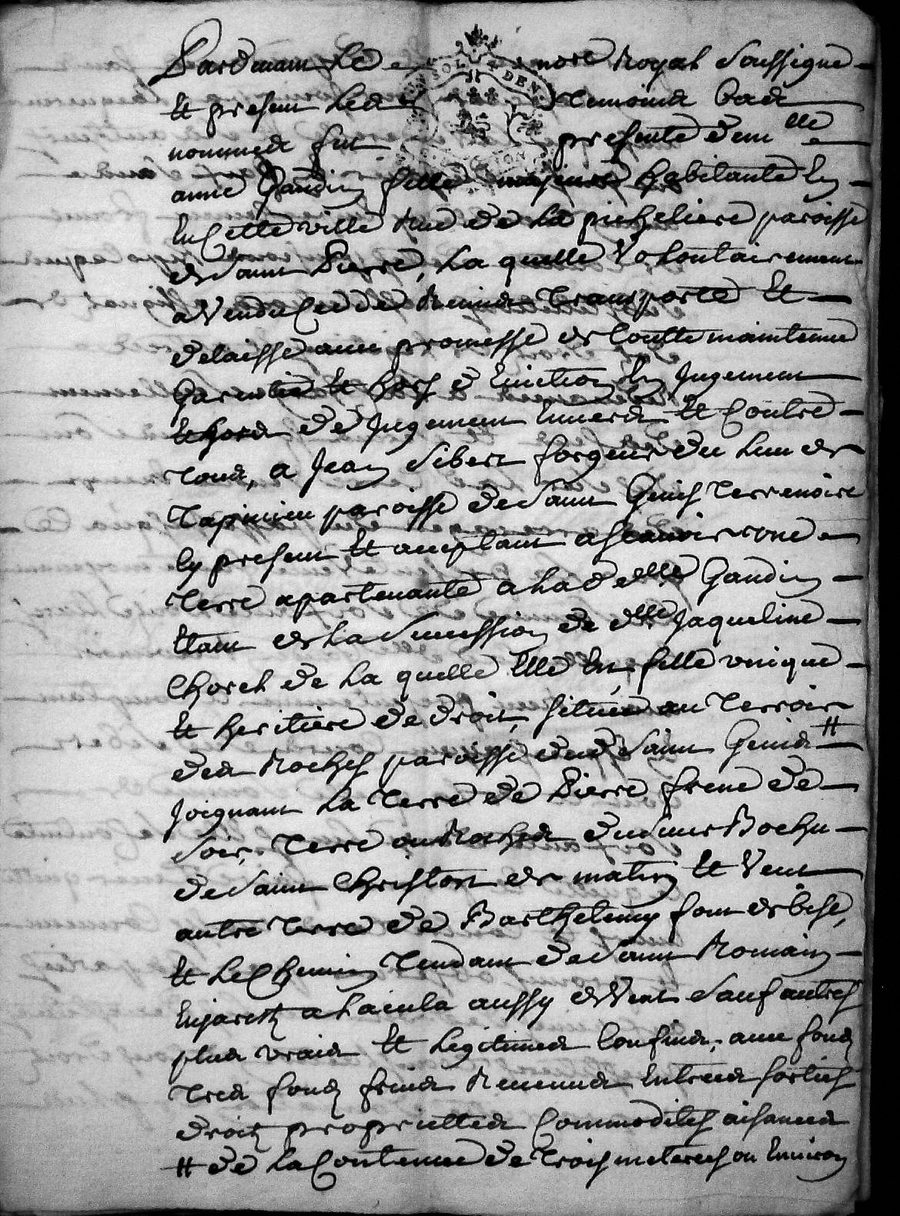 Pardevant Le no.re Royal Soussigné
Et present Les Temoins bas
nommés fut presente dem.lle
anne Gaudin fille majeure habitante En
En Cette ville Rue de La picheliere paroisse
de Saint Pierre, La quelle Volontairement
a Vendu Cedé Remis Transporté Et
delaissé avec promesse de toutte maintenue
Garentie Et hors d'Eviction En Jugement
Et hors de Jugement Envers Et Contre
Tous, a Jean Sibert forgeur du Lieu de
paroisse de Saint Genis Terrenoire
Cy present Et acceptant a Scavoir une
Terre apartenante a Lad delle Gaudin
Etant de La Succession de delle Jaqueline
Chorel de La quelle Elle Est fille unique
Et heritiere de droit, Située au Terroir
des Roches paroisse dud Saint Genis #
Joignant La Terre de Pierre de
Soir, Terre ou Rochers du Sieur Bochu
de Saint Christost de matin Et Vent
autre Terre de Barthelemy font de bise,
Et Le Chemin Tendant de Saint Romain
Enjarest a Lacula aussy de Vent Sauf autres
plus vrais Et Legitimes Confins, avec fond
Tres fond Revenus Entrées Sorties
droits proprietes Commodites aisances
# de La Contenue de Trois meterees ou Environ